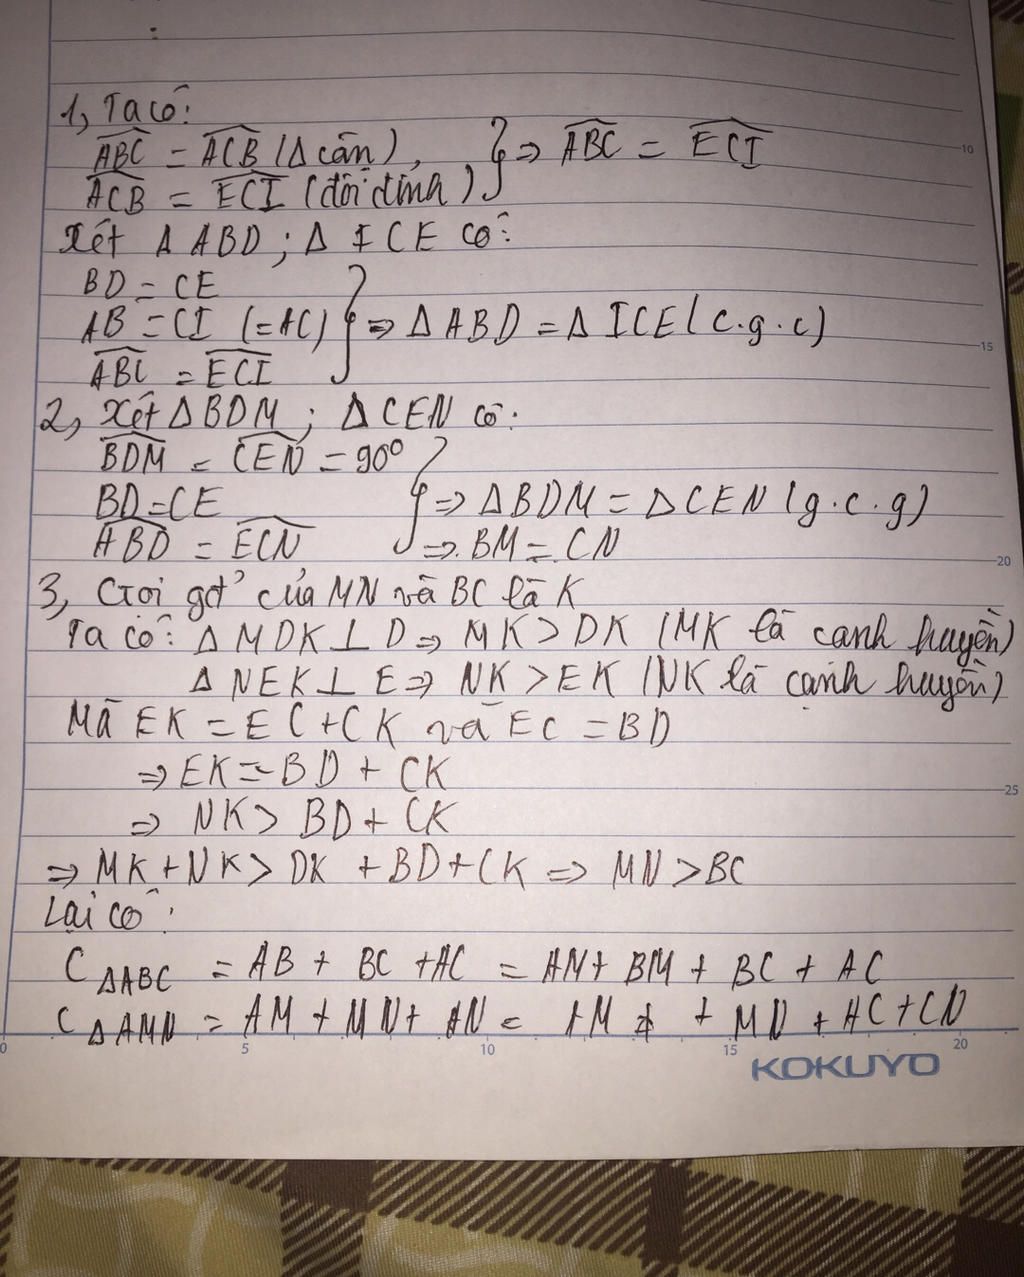 1, Ta có:
ABC = ACB (Δ cân), } => ABC = ECI
ACB = ECI (đối đỉnh)
Xét Δ ABD ; Δ ICE có:
BD = CE
AB = CI (=AC) } => Δ ABD = Δ ICE (c.g.c)
ABC = ECI
2, Xét Δ BDM ; Δ CEN có:
BDM = CEN = 90°
BD = CE } => Δ BDM = Δ CEN (g.c.g)
ABD = ECN => BM = CN
3, Gọi gđ' của MN và BC là K
Ta có: Δ MDK ⊥ D => MK > DK (MK là cạnh huyền)
Δ NEK ⊥ E => NK > EK (NK là cạnh huyền)
Mà EK = EC + CK và EC = BD
=> EK = BD + CK
=> NK > BD + CK
=> MK + NK > DK + BD + CK => MN > BC
Lại có:
C ΔABC = AB + BC + AC = AM + BM + BC + AC
C ΔAMN = AM + MN + AN = AM + MN + AC + CN
0 5 10 15 20
10
15
20
25
KOKUYO